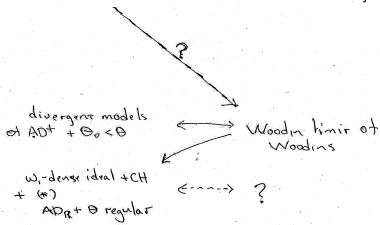 ?
divergent models
of AD⁺ + Θ₀ < Θ
Woodin limit of
Woodins
ω₁-dense ideal + CH
+ (*)
AD_ℝ + Θ regular
?